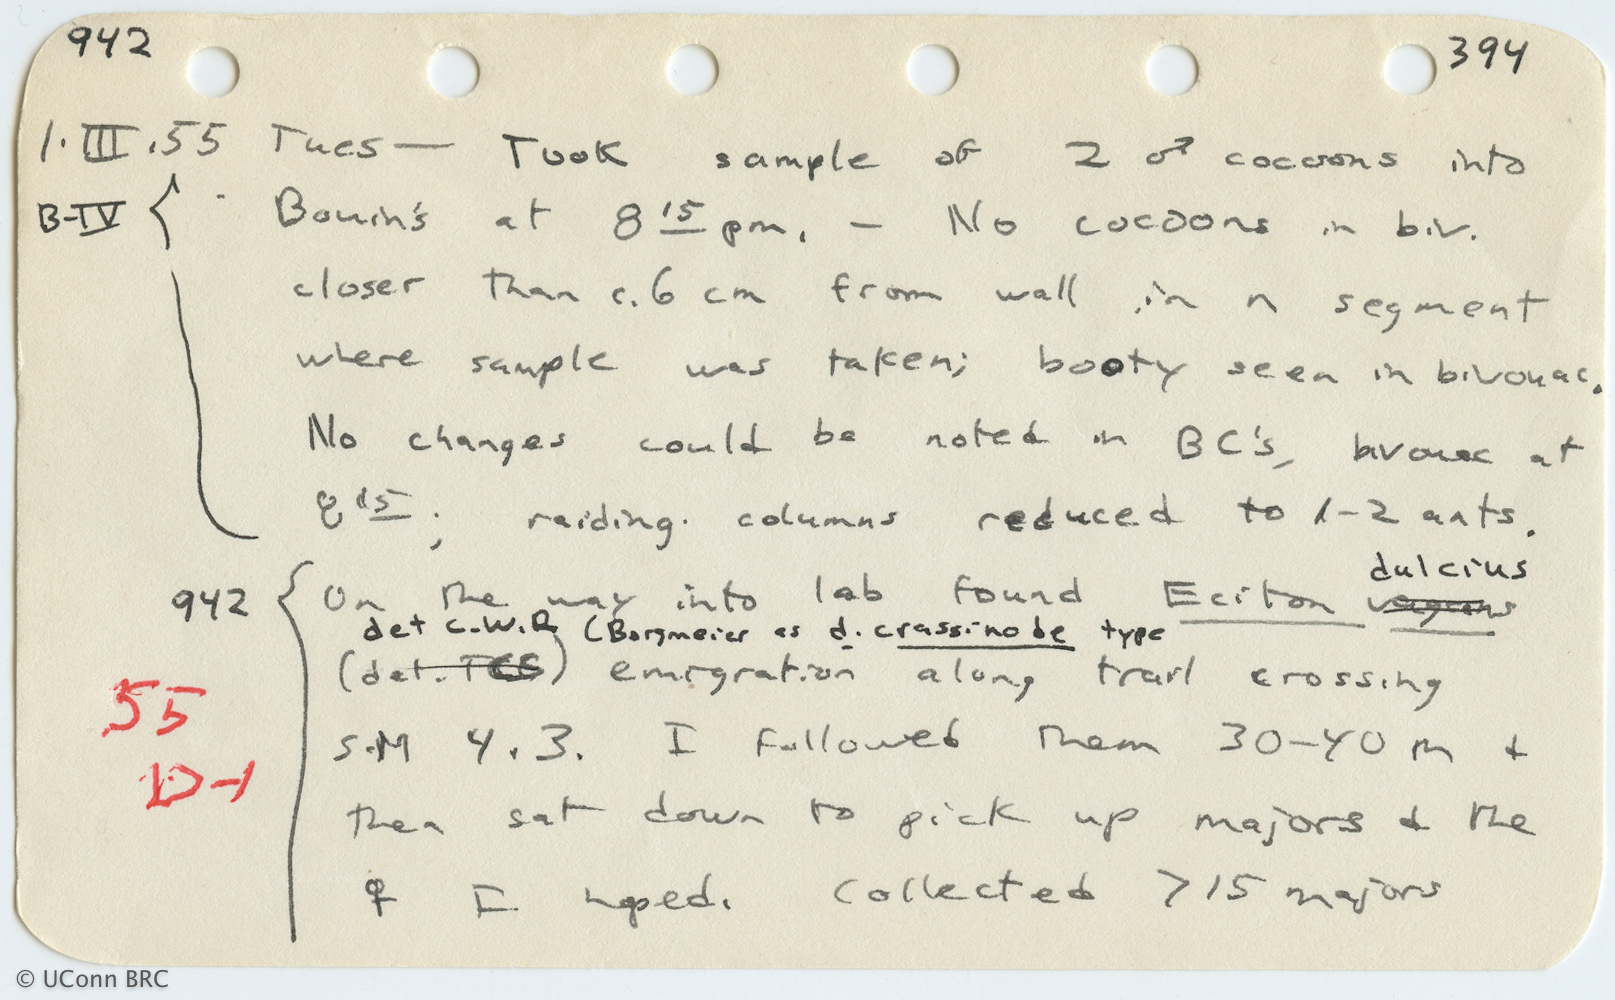 942
394
1.III.55 Tues — Took sample of 2 ♂ cocoons into
B-IV
Bouin's at 8 15 pm. — No cocoons in biv.
closer than c. 6 cm from wall in n segment
where sample was taken; booty seen in bivouac.
No changes could be noted in BC's, bivouac at
8 15; raiding columns reduced to 1-2 ants.
dulcius
942 On the way into lab found Eciton vagans
det C.W.R (Borgmeier as d. crassinode type
(det. TCS) emigration along trail crossing
55
S.M 4.3. I followed them 30-40 m &
D-1
then sat down to pick up majors & the
♀ I hoped. Collected >15 majors
© UConn BRC